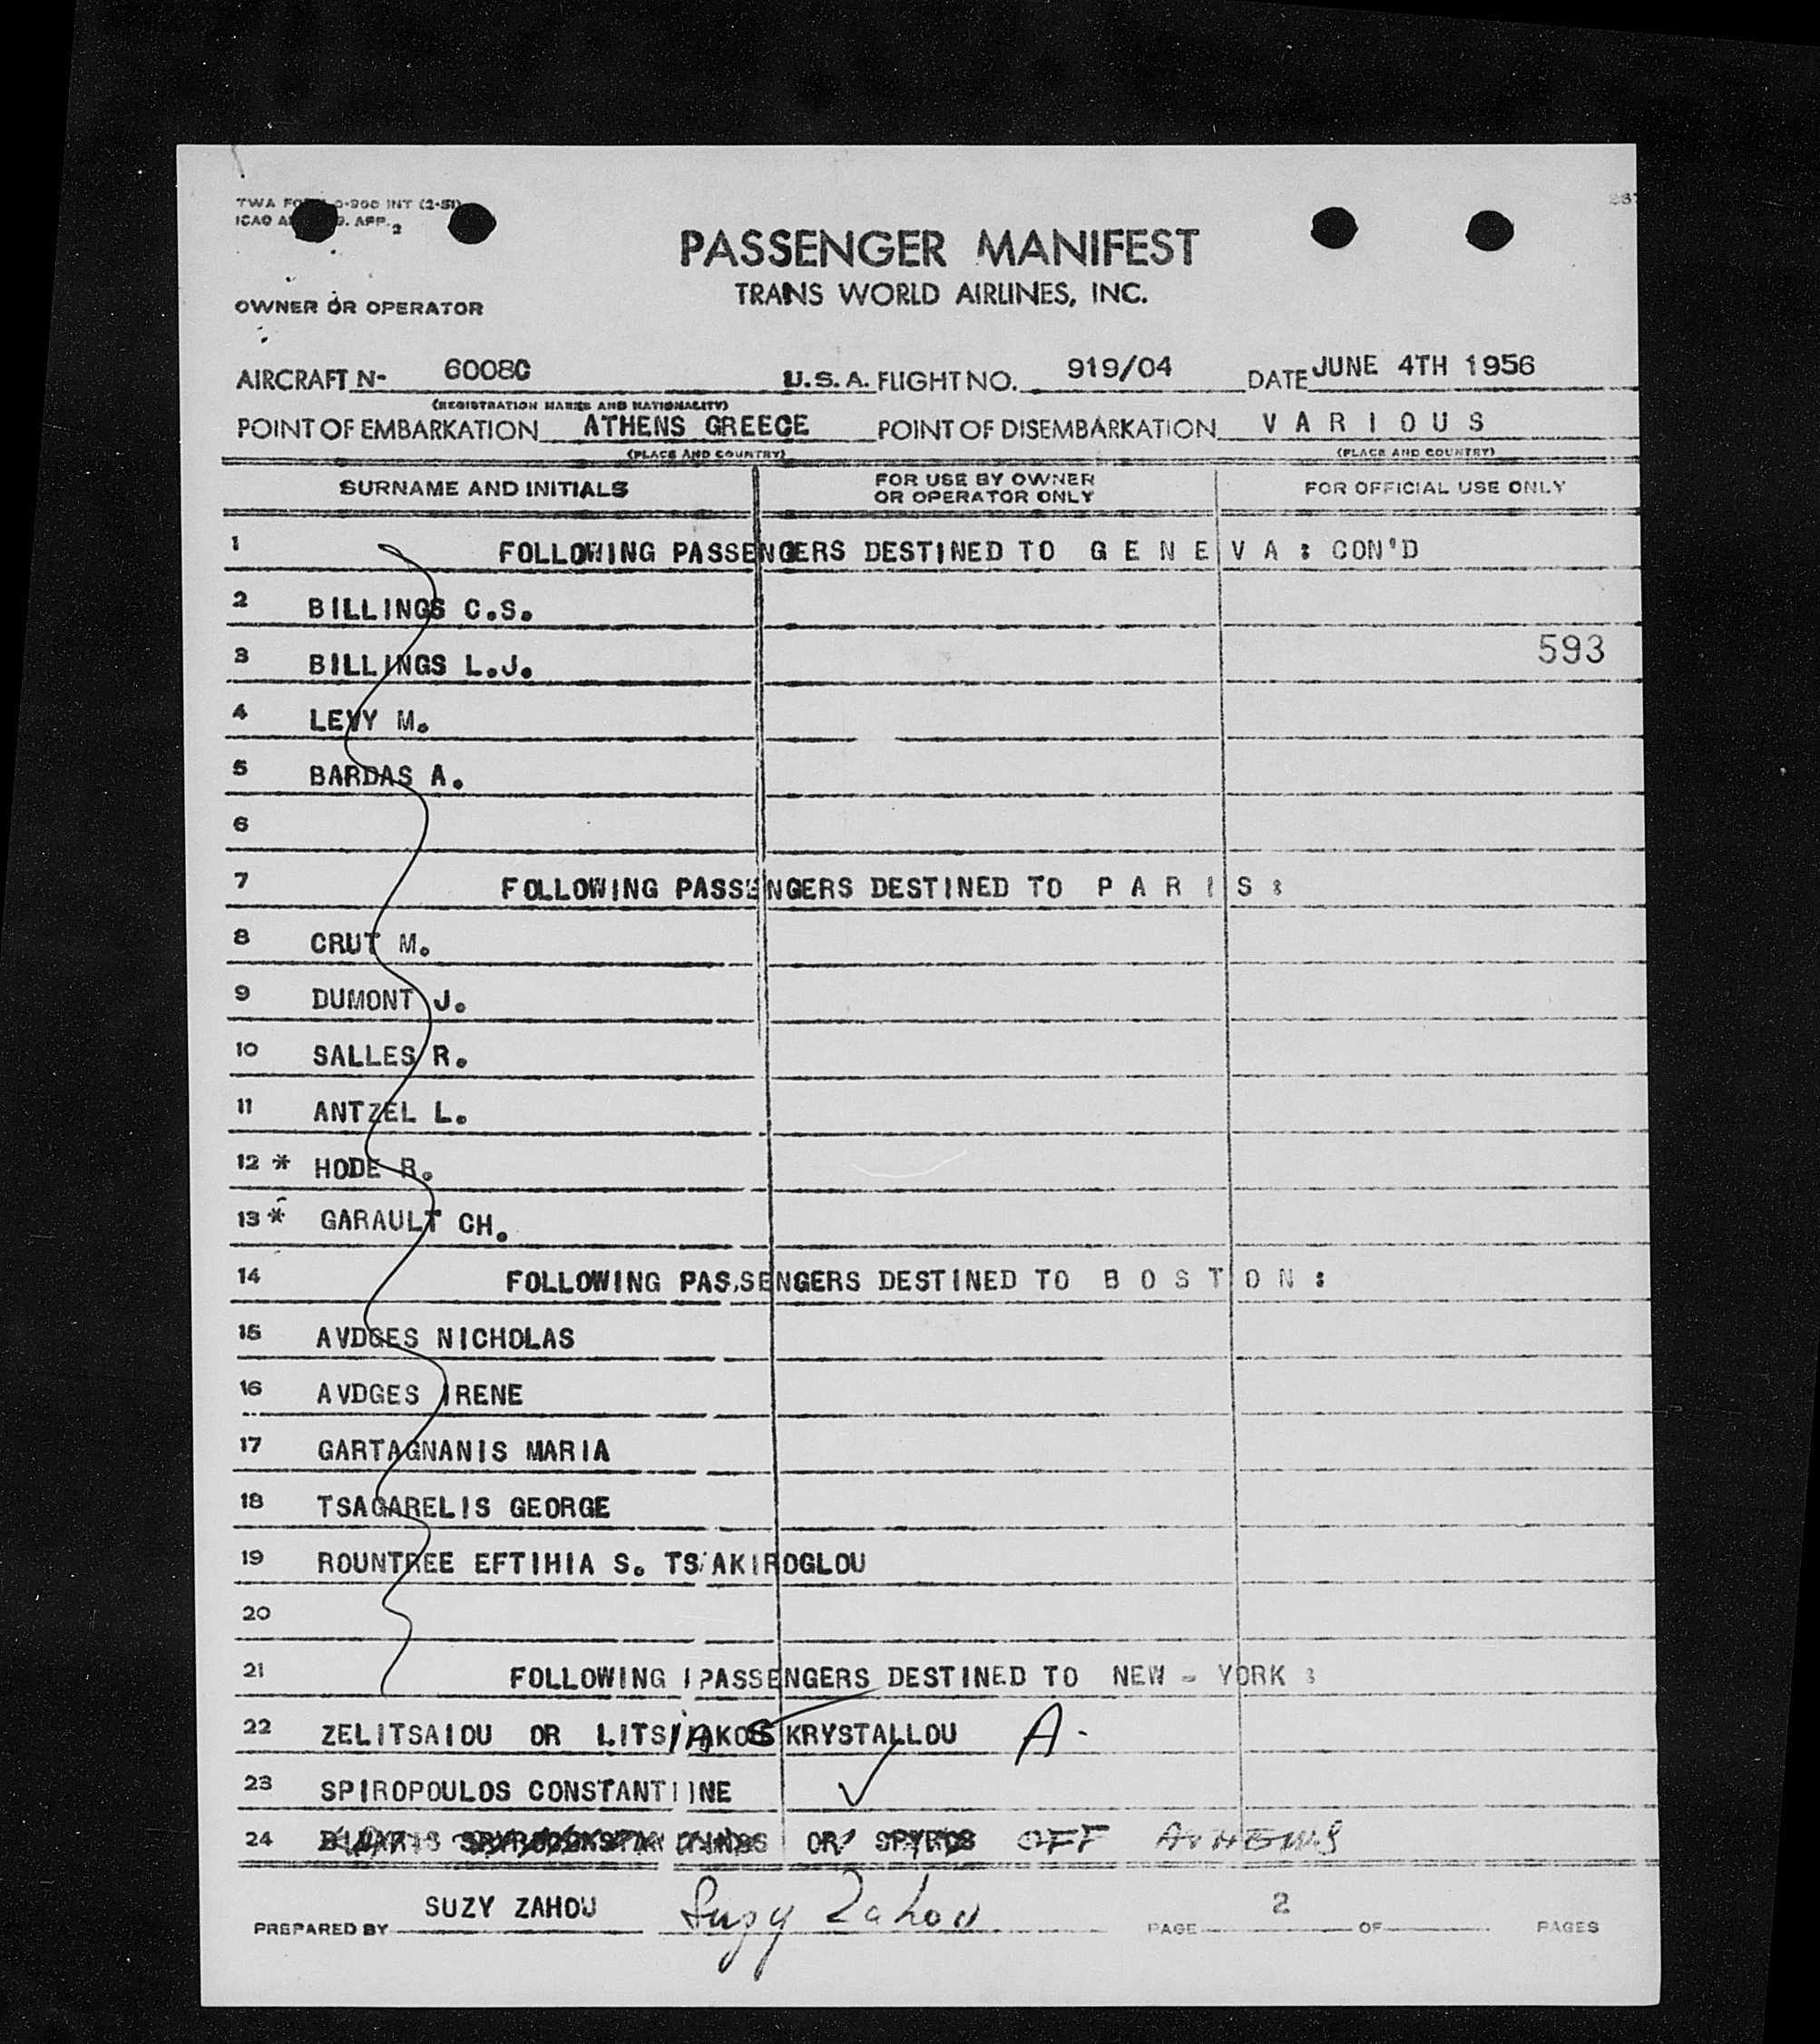 TWA FO 0-900 INT (2-51)
ICAO A 9. APP. 2
PASSENGER MANIFEST
TRANS WORLD AIRLINES, INC.
OWNER OR OPERATOR
AIRCRAFT N- 6008C U.S.A. FLIGHT NO. 919/04 DATE JUNE 4TH 1956
(REGISTRATION MARKS AND NATIONALITY)
POINT OF EMBARKATION ATHENS GREECE POINT OF DISEMBARKATION V A R I O U S
(PLACE AND COUNTRY) (PLACE AND COUNTRY)
SURNAME AND INITIALS FOR USE BY OWNER OR OPERATOR ONLY FOR OFFICIAL USE ONLY
1 FOLLOWING PASSENGERS DESTINED TO G E N E V A : CON'D
2 BILLINGS C.S.
3 BILLINGS L.J. 593
4 LEVY M.
5 BARDAS A.
6
7 FOLLOWING PASSENGERS DESTINED TO P A R I S :
8 CRUT M.
9 DUMONT J.
10 SALLES R.
11 ANTZEL L.
12 * HODE R.
13 * GARAULT CH.
14 FOLLOWING PASSENGERS DESTINED TO B O S T O N :
15 AVDGES NICHOLAS
16 AVDGES IRENE
17 GARTAGNANIS MARIA
18 TSAGARELIS GEORGE
19 ROUNTREE EFTIHIA S. TSAKIROGLOU
20
21 FOLLOWING PASSENGERS DESTINED TO NEW - YORK :
22 ZELITSAIOU OR LITSIAKOS KRYSTALLOU A.
23 SPIROPOULOS CONSTANTINE ✓
24 OR SPYROS OFF ATHENS
PREPARED BY SUZY ZAHOU Suzy Zahou PAGE 2 OF PAGES